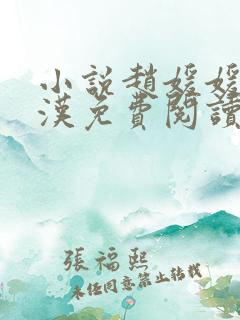 小說趙媛媛
漢免費閱讀
張福熙
未任同意禁止转载